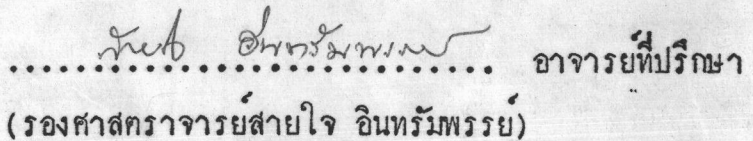 สายใจ อินทรัมพรรย์ อาจารย์ที่ปรึกษา
(รองศาสตราจารย์สายใจ อินทรัมพรรย์)